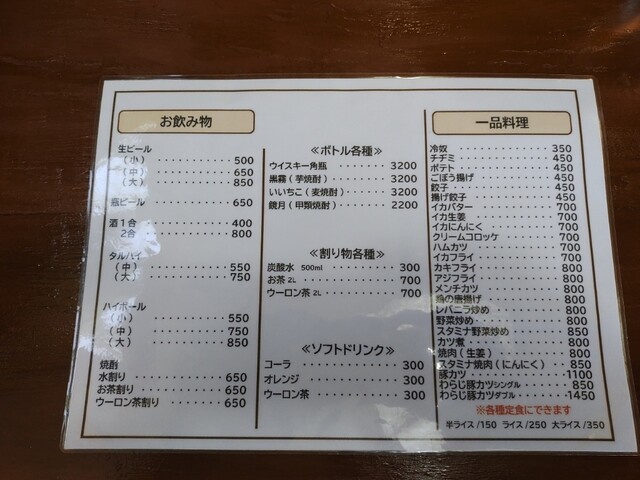 お飲み物
生ビール
(小) ・・・・・・・・・・ 500
(中) ・・・・・・・・・・ 650
(大) ・・・・・・・・・・ 850
瓶ビール ・・・・・・・・・・ 650
酒1合 ・・・・・・・・・・ 400
2合 ・・・・・・・・・・ 800
タルハイ
(中) ・・・・・・・・・・ 550
(大) ・・・・・・・・・・ 750
ハイボール
(小) ・・・・・・・・・・ 550
(中) ・・・・・・・・・・ 750
(大) ・・・・・・・・・・ 850
焼酎
水割り ・・・・・・・・・・ 650
お茶割り ・・・・・・・・・・ 650
ウーロン茶割り ・・・・・・・・ 650
≪ボトル各種≫
ウイスキー角瓶 ・・・・・・・ 3200
黒霧(芋焼酎) ・・・・・・・ 3200
いいちこ(麦焼酎) ・・・・・・ 3200
鏡月(甲類焼酎) ・・・・・・ 2200
≪割り物各種≫
炭酸水 500ml ・・・・・・・・ 300
お茶 2L ・・・・・・・・・・ 700
ウーロン茶 2L ・・・・・・・・ 700
≪ソフトドリンク≫
コーラ ・・・・・・・・・・ 300
オレンジ ・・・・・・・・・・ 300
ウーロン茶 ・・・・・・・・・・ 300
一品料理
冷奴 ・・・・・・・・・・ 350
チヂミ ・・・・・・・・・・ 450
ポテト ・・・・・・・・・・ 450
ごぼう揚げ ・・・・・・・・・・ 450
餃子 ・・・・・・・・・・ 450
揚げ餃子 ・・・・・・・・・・ 450
イカバター ・・・・・・・・・・ 700
イカ生姜 ・・・・・・・・・・ 700
イカにんにく ・・・・・・・・・・ 700
クリームコロッケ ・・・・・・・・ 700
ハムカツ ・・・・・・・・・・ 700
イカフライ ・・・・・・・・・・ 700
カキフライ ・・・・・・・・・・ 800
アジフライ ・・・・・・・・・・ 800
メンチカツ ・・・・・・・・・・ 800
鶏の唐揚げ ・・・・・・・・・・ 800
レバニラ炒め ・・・・・・・・・・ 800
野菜炒め ・・・・・・・・・・ 800
スタミナ野菜炒め ・・・・・・・・ 850
カツ煮 ・・・・・・・・・・ 800
焼肉(生姜) ・・・・・・・・・・ 800
スタミナ焼肉(にんにく) ・・・・ 850
豚カツ ・・・・・・・・・・ 1100
わらじ豚カツシングル ・・・・・・ 850
わらじ豚カツダブル ・・・・・・ 1450
※各種定食にできます
半ライス/150 ライス/250 大ライス/350